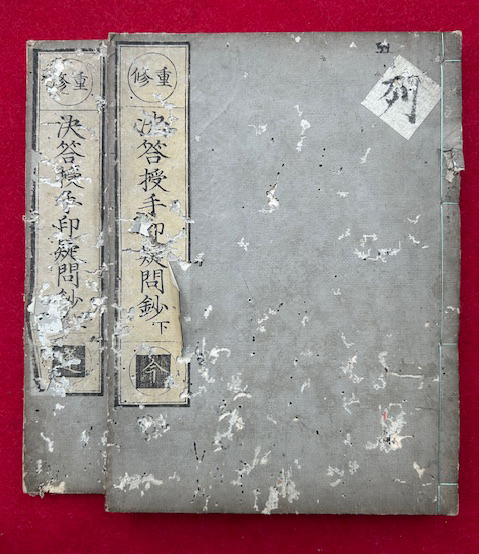 重修
決答授手印疑問鈔下
列
重修
決答授手印疑問鈔